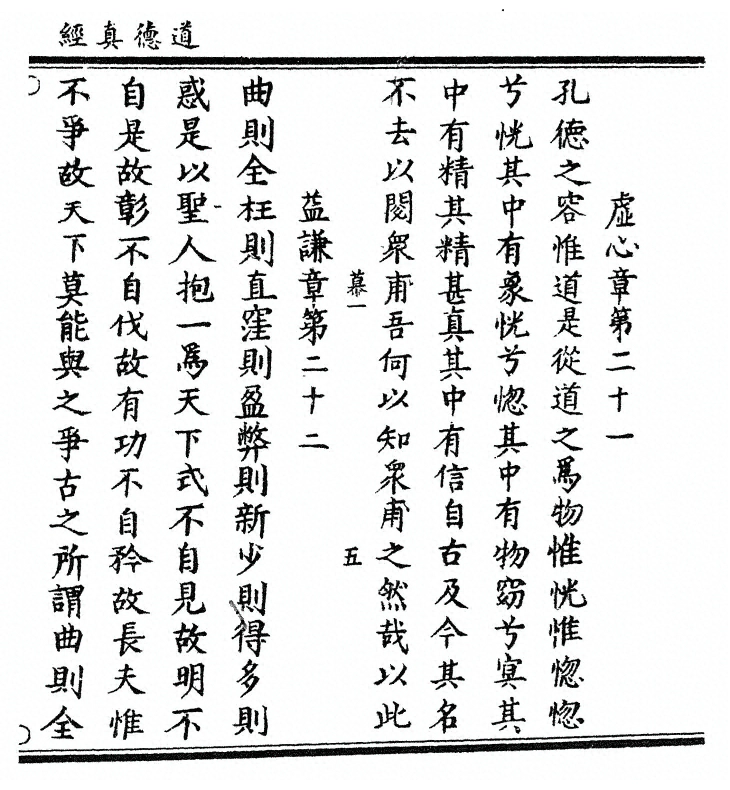 道德真經
虛心章第二十一
孔德之容惟道是從道之爲物惟恍惟惚惚
兮恍其中有象恍兮惚其中有物窈兮㝠其
中有精其精甚真其中有信自古及今其名
不去以閱衆甫吾何以知衆甫之然哉以此
慕一
五
益謙章第二十二
曲則全枉則直窪則盈弊則新少則得多則
惑是以聖人抱一爲天下式不自見故明不
自是故彰不自伐故有功不自矜故長夫惟
不爭故天下莫能與之爭古之所謂曲則全